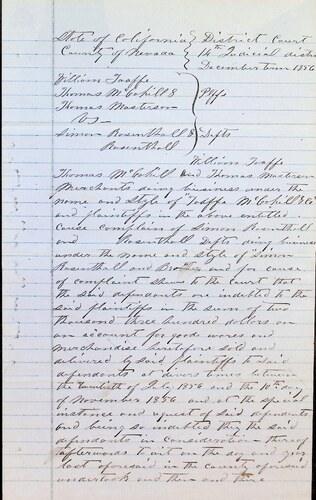 State of California } District Court
County of Nevada } 14th Judicial distri
December term 1856
William Taaffe
Thomas McCahill & } Plffs
Thomas Masterson
vs
Simon Rosenthall & } Defts
Rosenthall
William Taaffe
Thomas McCahill and Thomas Masterson
Merchants doing business under the
name and Style of Taaffe McCahill & Co
and plaintiffs in the above entitled
Cause Complain of Simon Rosenthall
and Rosenthall Defts doing business
under the name and Style of Simon
Rosenthall and Brother and for cause
of complaint shew to the court that
the said defendants are indebted to the
said plaintiffs in the sum of two
thousand three hundred dollars on
an account for goods wares and
merchandise heretofore sold and
delivered by said plaintiffs to said
defendants at divers times between
the twentieth of July 1856 and the 10th day
of November 1856 and at the special
instance and request of said defendants
and being so indebted they the said
defendants in consideration thereof
afterwards to wit on the day and year
last aforesaid in the county aforesaid
undertook and then and there